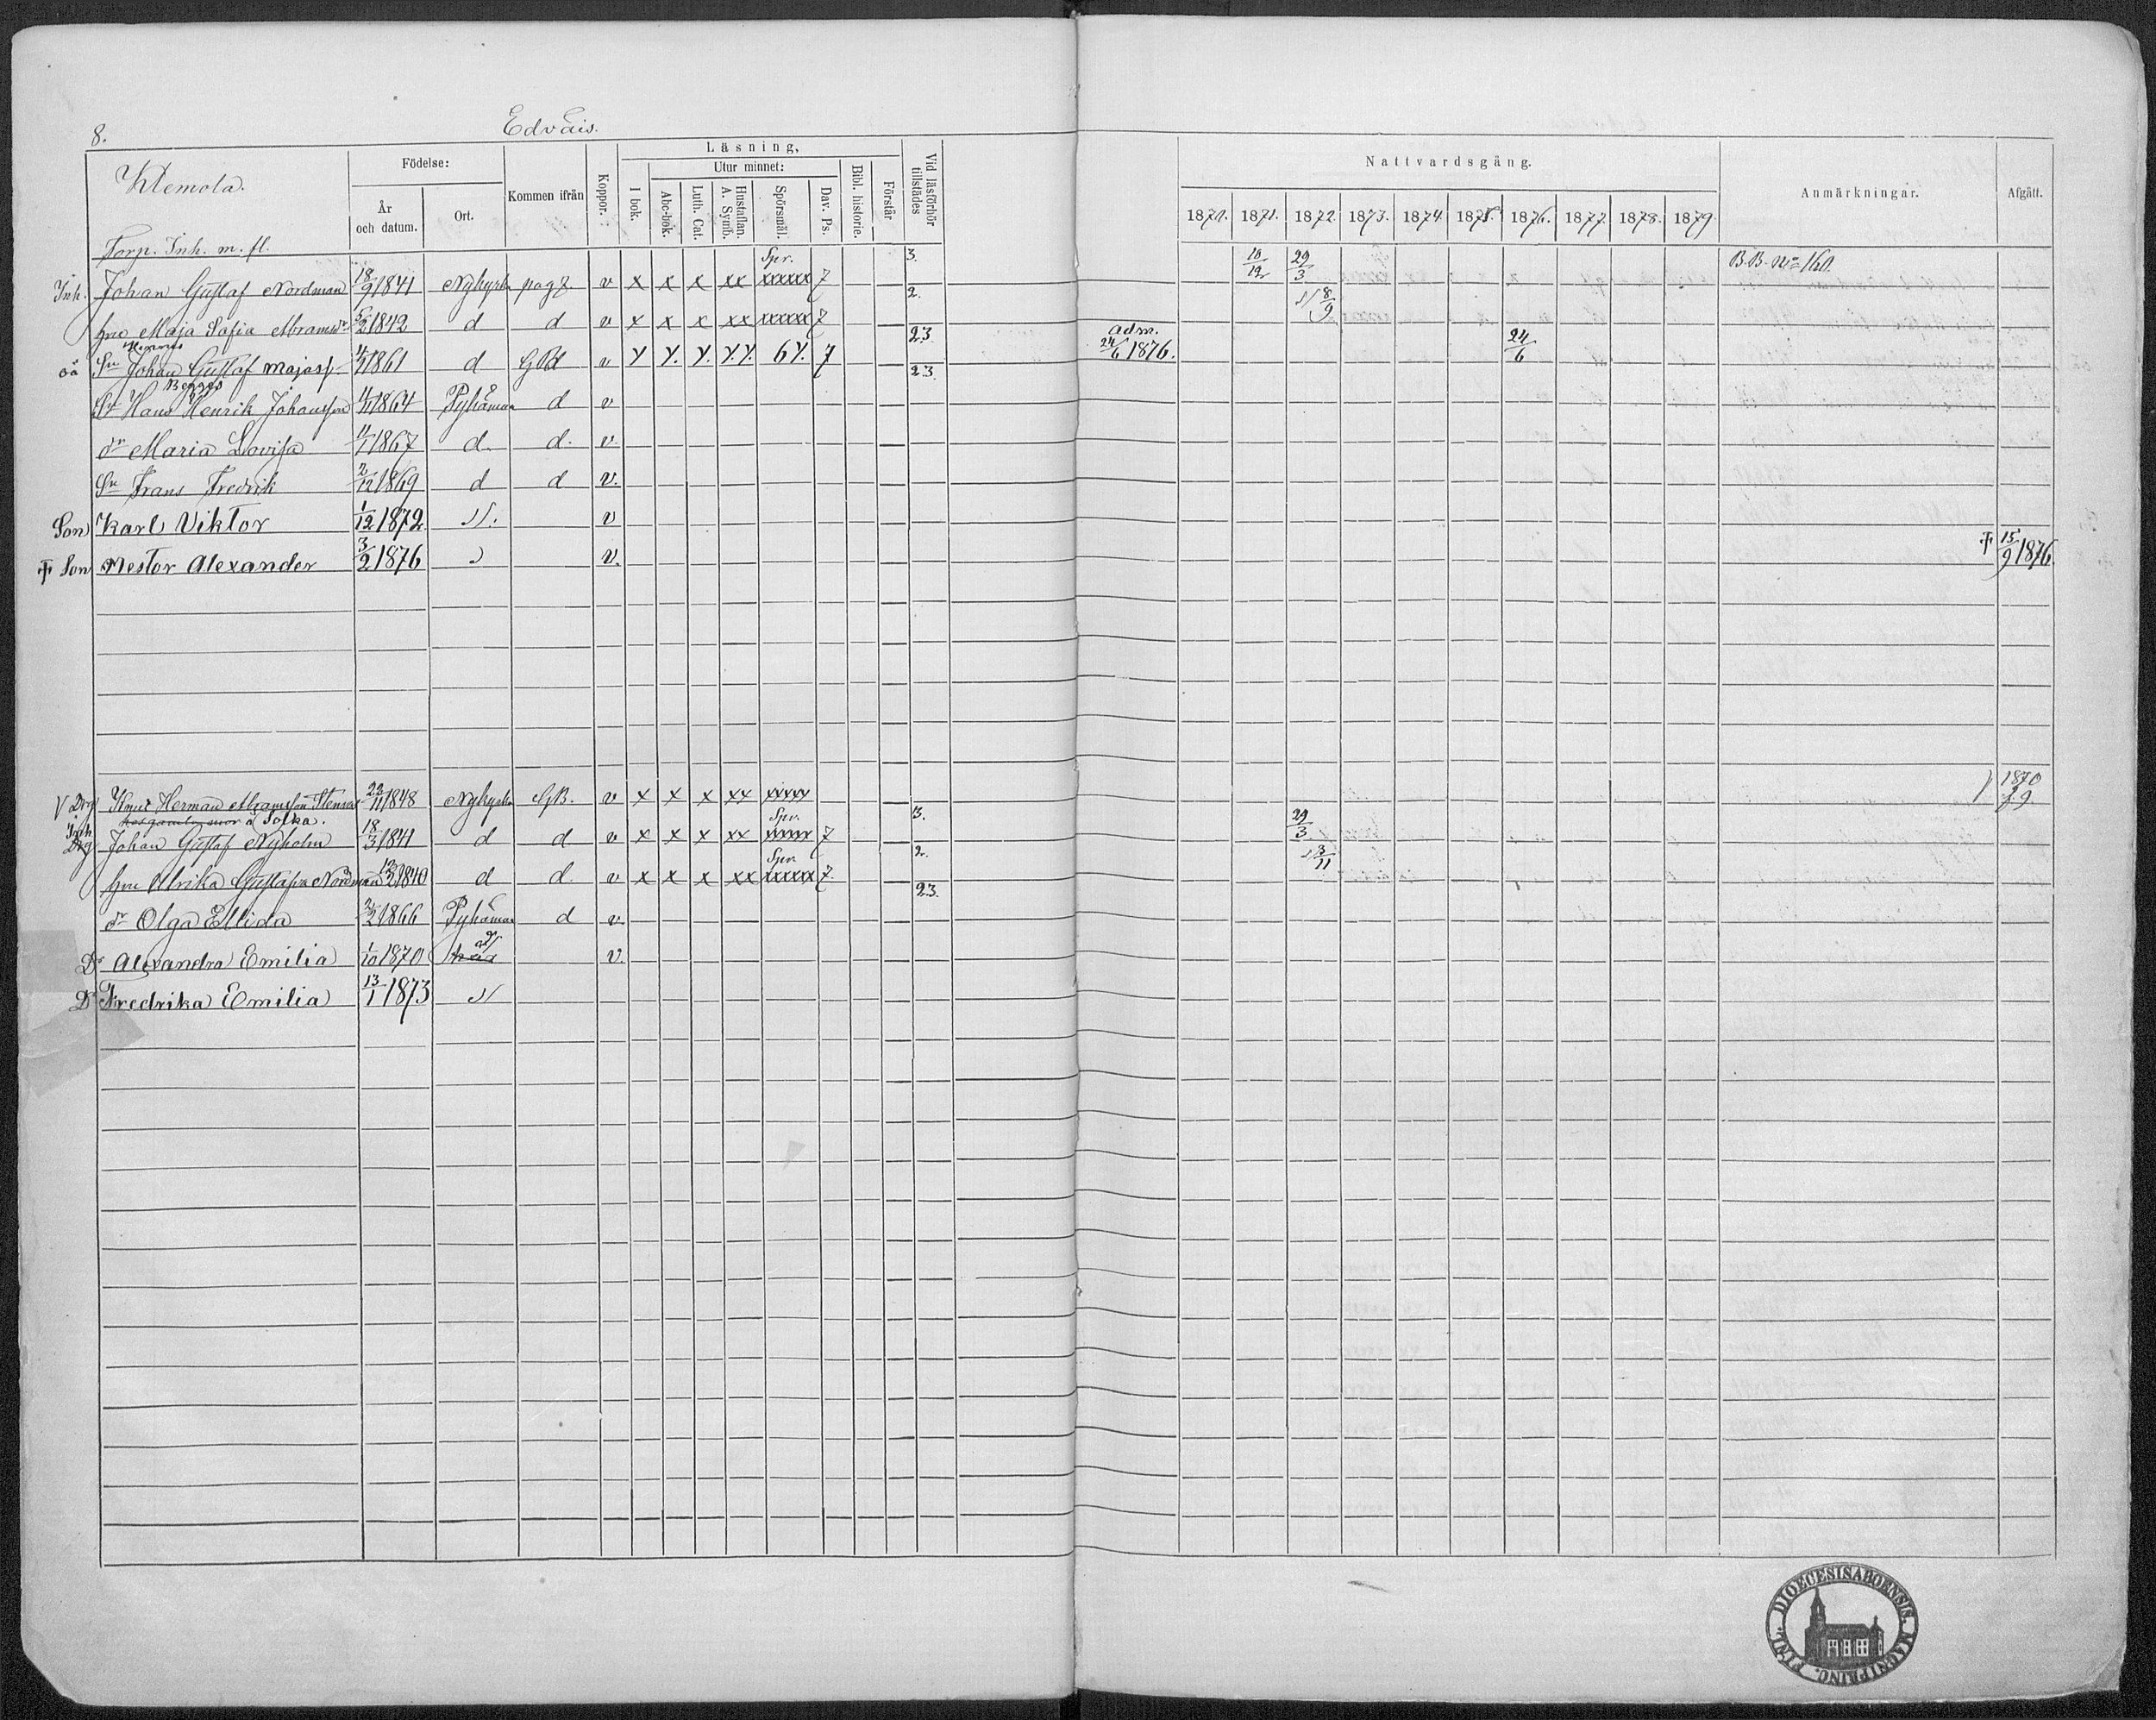 8.
Edväis.
Klemola.
Födelse:
År och datum.
Ort.
Kommen ifrån
Koppor.
Läsning,
I bok.
Utur minnet:
Abc-bok.
Luth. Cat.
Hustaflan. A. Symb.
Spörsmål.
Dav. Ps.
Bibl. historie.
Förstår
Vid läsförhör tillstädes
Nattvardsgång.
1870. 1871. 1872. 1873. 1874. 1875. 1876. 1877. 1878. 1879.
Anmärkningar.
Afgått.
Torp. Inh. m. fl.
Inh. Johan Gustaf Nordman 18/9 1841 Nykyrk pag 8 v x x x xx Spr. xxxxx 7 3. 10/12 29/3 B.B. No 160.
hu Maja Sofia Abramsdr 5/2 1842 d d v x x x xx xxxxx 7 2. 8/9
oä Sn Johan Gustaf Majass. 1861 d GBd v Y Y. Y. Y.Y. 6Y. 7 23. adm. 24/6 1876. 24/6
Sn Hans Henrik Johansson 1864 Pyhämaa d v 23.
dr Maria Lovisa 11/1 1867 d. d. v.
Sn Frans Fredrik 2/12 1869 d d v.
Son Karl Viktor 1/12 1872 v
† Son Nestor Alexander 3/2 1876 v. † 15/9 1876.
V Drg Herman Abramsson 22/11 1848 Nykyrk GB. v x x x xx xxxxx 1870
å Solka.
Inh. Drg Johan Gustaf Nyholm 18/3 1841 d d v x x x xx Spr. xxxxx 7 3. 29/3
hu Ulrika Gustafsa Nordman 13/2 1840 d d. v x x x xx Spr. xxxxx 7. 2. 3/11
dr Olga Ellida 2/2 1866 Pyhämaa d v. 23.
Dr Alexandra Emilia 1/10 1870 v.
Dr Fredrika Emilia 13/1 1873
FINL. DIOECESIS ABOENSIS. MAGNI PRINC.